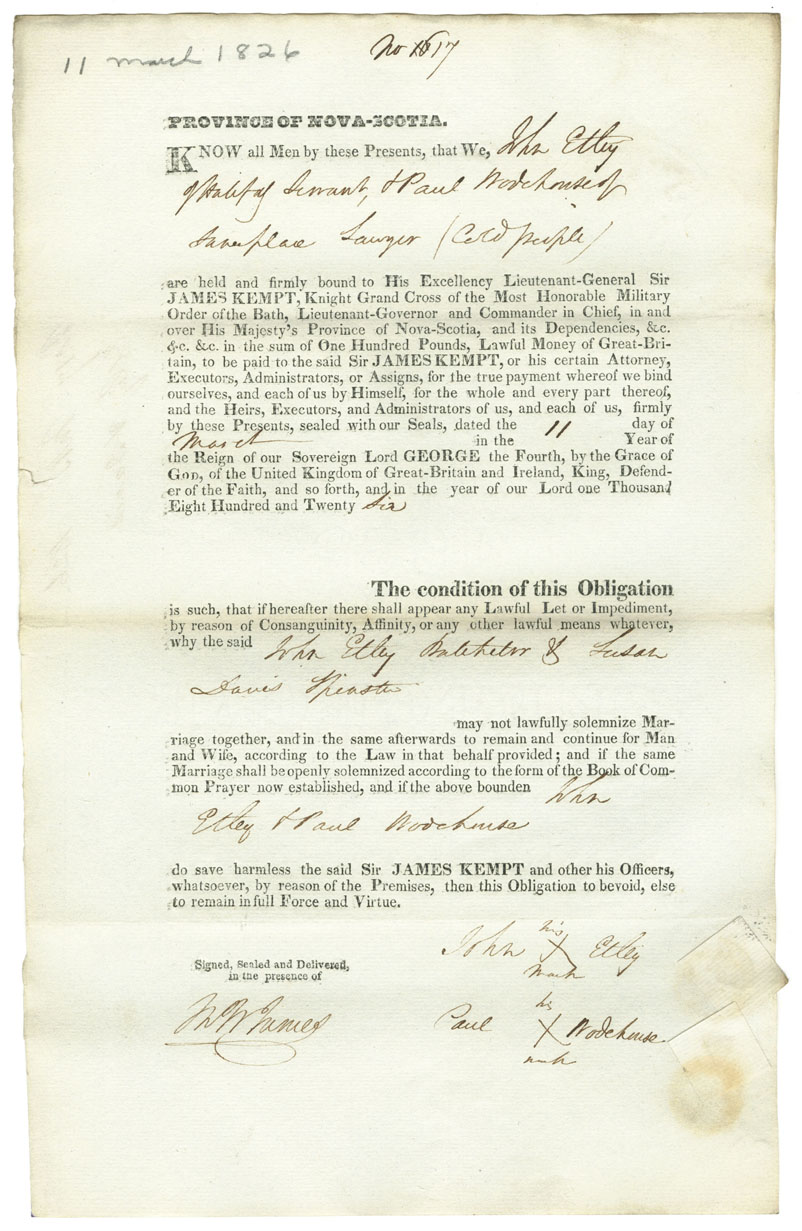 11 march 1826
No 1617
PROVINCE OF NOVA-SCOTIA.
KNOW all Men by these Presents, that We, John Etley
of Halifax Servant, & Paul Wodehouse of
same place Sawyer (Cold people)
are held and firmly bound to His Excellency Lieutenant-General Sir
JAMES KEMPT, Knight Grand Cross of the Most Honorable Military
Order of the Bath, Lieutenant-Governor and Commander in Chief, in and
over His Majesty's Province of Nova-Scotia, and its Dependencies, &c.
&c. &c. in the sum of One Hundred Pounds, Lawful Money of Great-Bri-
tain, to be paid to the said Sir JAMES KEMPT, or his certain Attorney,
Executors, Administrators, or Assigns, for the true payment whereof we bind
ourselves, and each of us by Himself, for the whole and every part thereof,
and the Heirs, Executors, and Administrators of us, and each of us, firmly
by these Presents, sealed with our Seals, dated the 11 day of
March in the Year of
the Reign of our Sovereign Lord GEORGE the Fourth, by the Grace of
God, of the United Kingdom of Great-Britain and Ireland, King, Defend-
er of the Faith, and so forth, and in the year of our Lord one Thousand
Eight Hundred and Twenty Six
The condition of this Obligation
is such, that if hereafter there shall appear any Lawful Let or Impediment,
by reason of Consanguinity, Affinity, or any other lawful means whatever,
why the said John Etley Batchelor & Susan
Davis Spinster
may not lawfully solemnize Mar-
riage together, and in the same afterwards to remain and continue for Man
and Wife, according to the Law in that behalf provided; and if the same
Marriage shall be openly solemnized according to the form of the Book of Com-
mon Prayer now established, and if the above bounden John
Etley & Paul Wodehouse
do save harmless the said Sir JAMES KEMPT and other his Officers,
whatsoever, by reason of the Premises, then this Obligation to bevoid, else
to remain in full Force and Virtue.
John his X mark Etley
Signed, Sealed and Delivered,
in the presence of
Paul his X mark Wodehouse
James